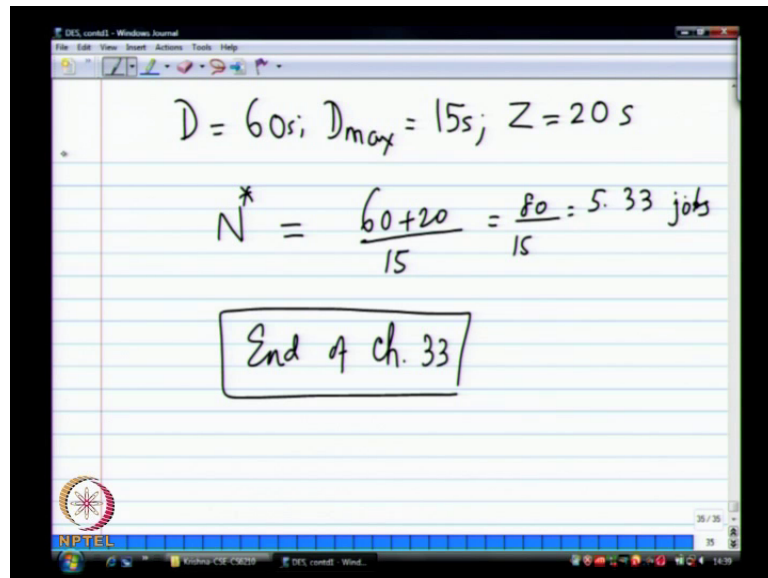 DES, contd1 - Windows Journal
File Edit View Insert Actions Tools Help
D = 60s; Dmax = 15s; Z = 20 s
N* = 60+20 / 15 = 80 / 15 = 5.33 jobs
End of Ch. 33
35 / 35
35
NPTEL
Krishna-CSE-CS6210
DES, contd1 - Wind...
14:39